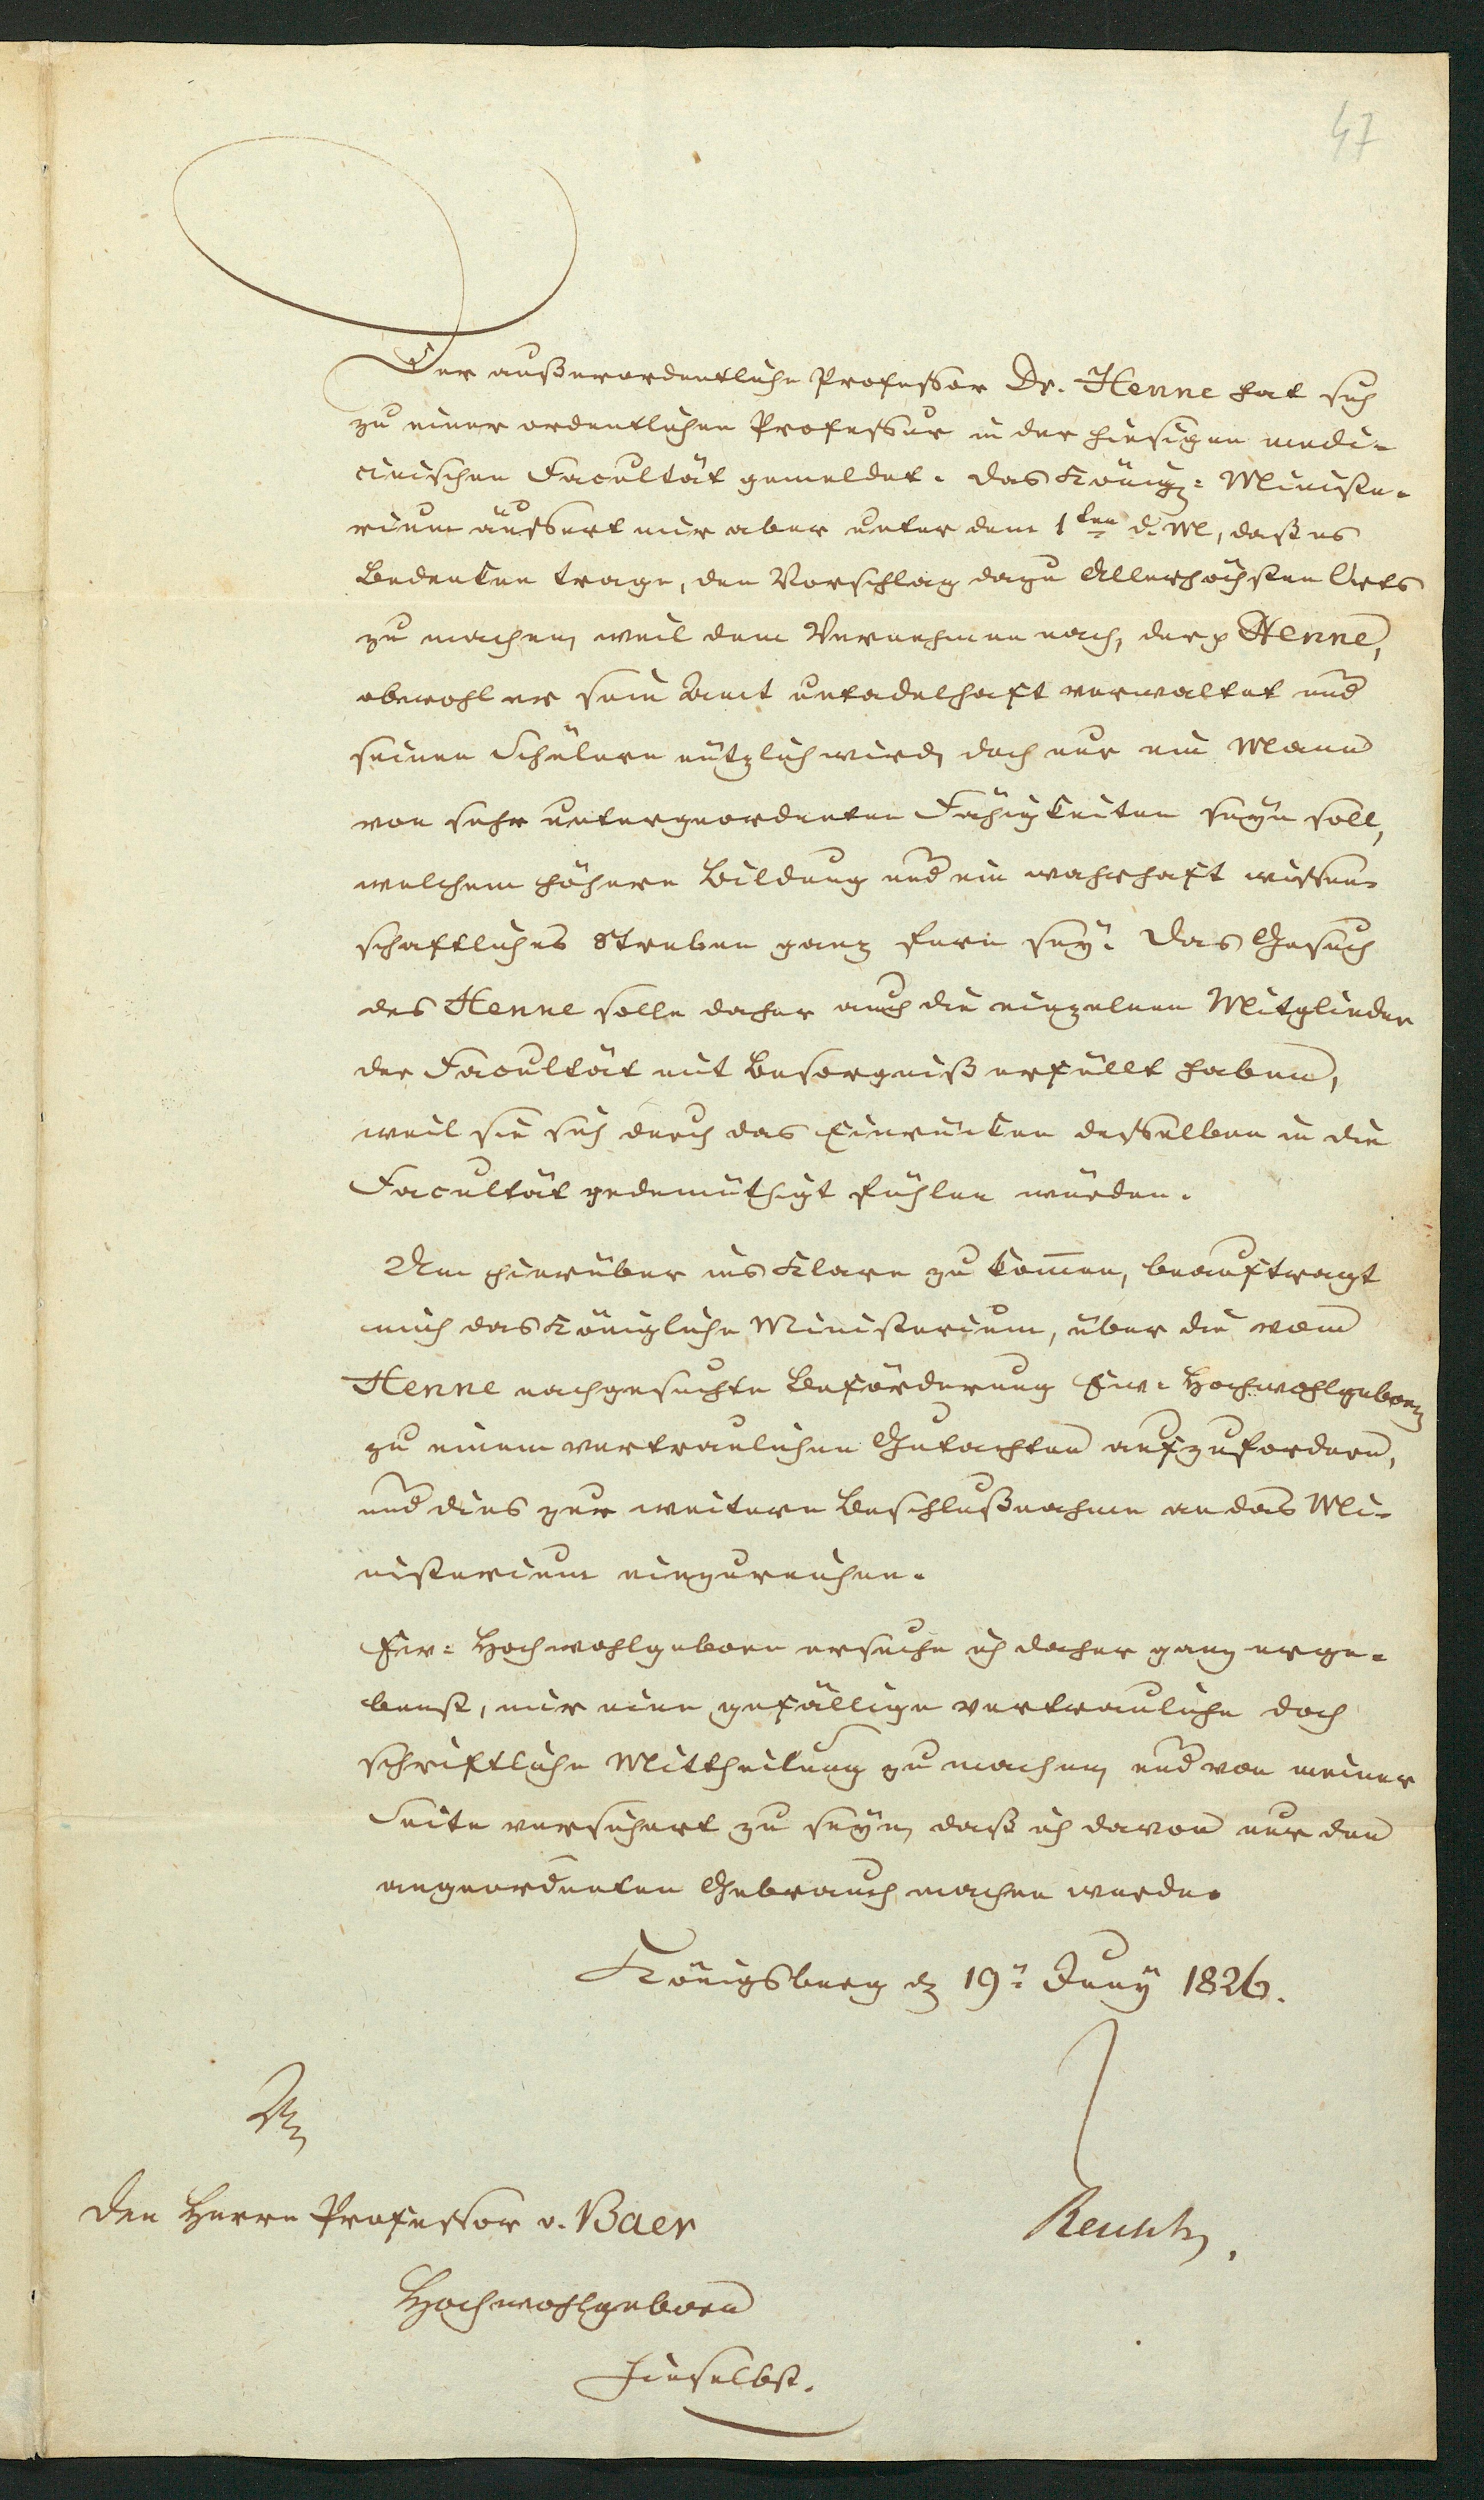 47
Der außerordentliche Professor Dr. Henne hat sich
zu einer ordentlichen Professur in der hiesigen medi-
cinischen Facultät gemeldet. Das Königl: Ministe-
rium äussert mir aber unter dem 1ten d. M, daß es
Bedenken trage, den Vorschlag dazu Allerhöchsten Orts
zu machen, weil dem Vernehmen nach, der p Henne,
obwohl er sein Amt untadelhaft verwaltet und
seinen Schülern nützlich wird, doch nur ein Mann
von sehr untergeordneten Fähigkeiten seyn soll,
welchem höhere Bildung und ein wahrhaft wissen-
schaftliches Streben ganz fern sey. Das Gesuch
des Henne solle daher auch die einzelnen Mitglieder
der Facultät mit Besorgniß erfüllt haben,
weil sie sich durch das Einrücken desselben in die
Facultät gedemüthigt fühlen würden.
Um hierüber ins Klare zu kom̅en, beauftragt
mich das Königliche Ministerium, über die vom
Henne nachgesuchte Beförderung Ew. Hochwohlgeborn
zu einem vertraulichen Gutachten aufzufordern,
und dies zur weitern Beschlußnahme an das Mi-
nisterium einzureichen.
Ew: Hochwohlgeborn ersuche ich daher ganz erge-
benst, mir eine gefällige vertrauliche doch
schriftliche Mittheilung zu machen, und von meiner
Seite versichert zu seyn, daß ich davon nur den
angeordneten Gebrauch machen werde.
Königsberg d 19n Juny 1826.
An
den Herrn Professor v. Baer
Reusch.
Hochwohlgeborn
hieselbst.